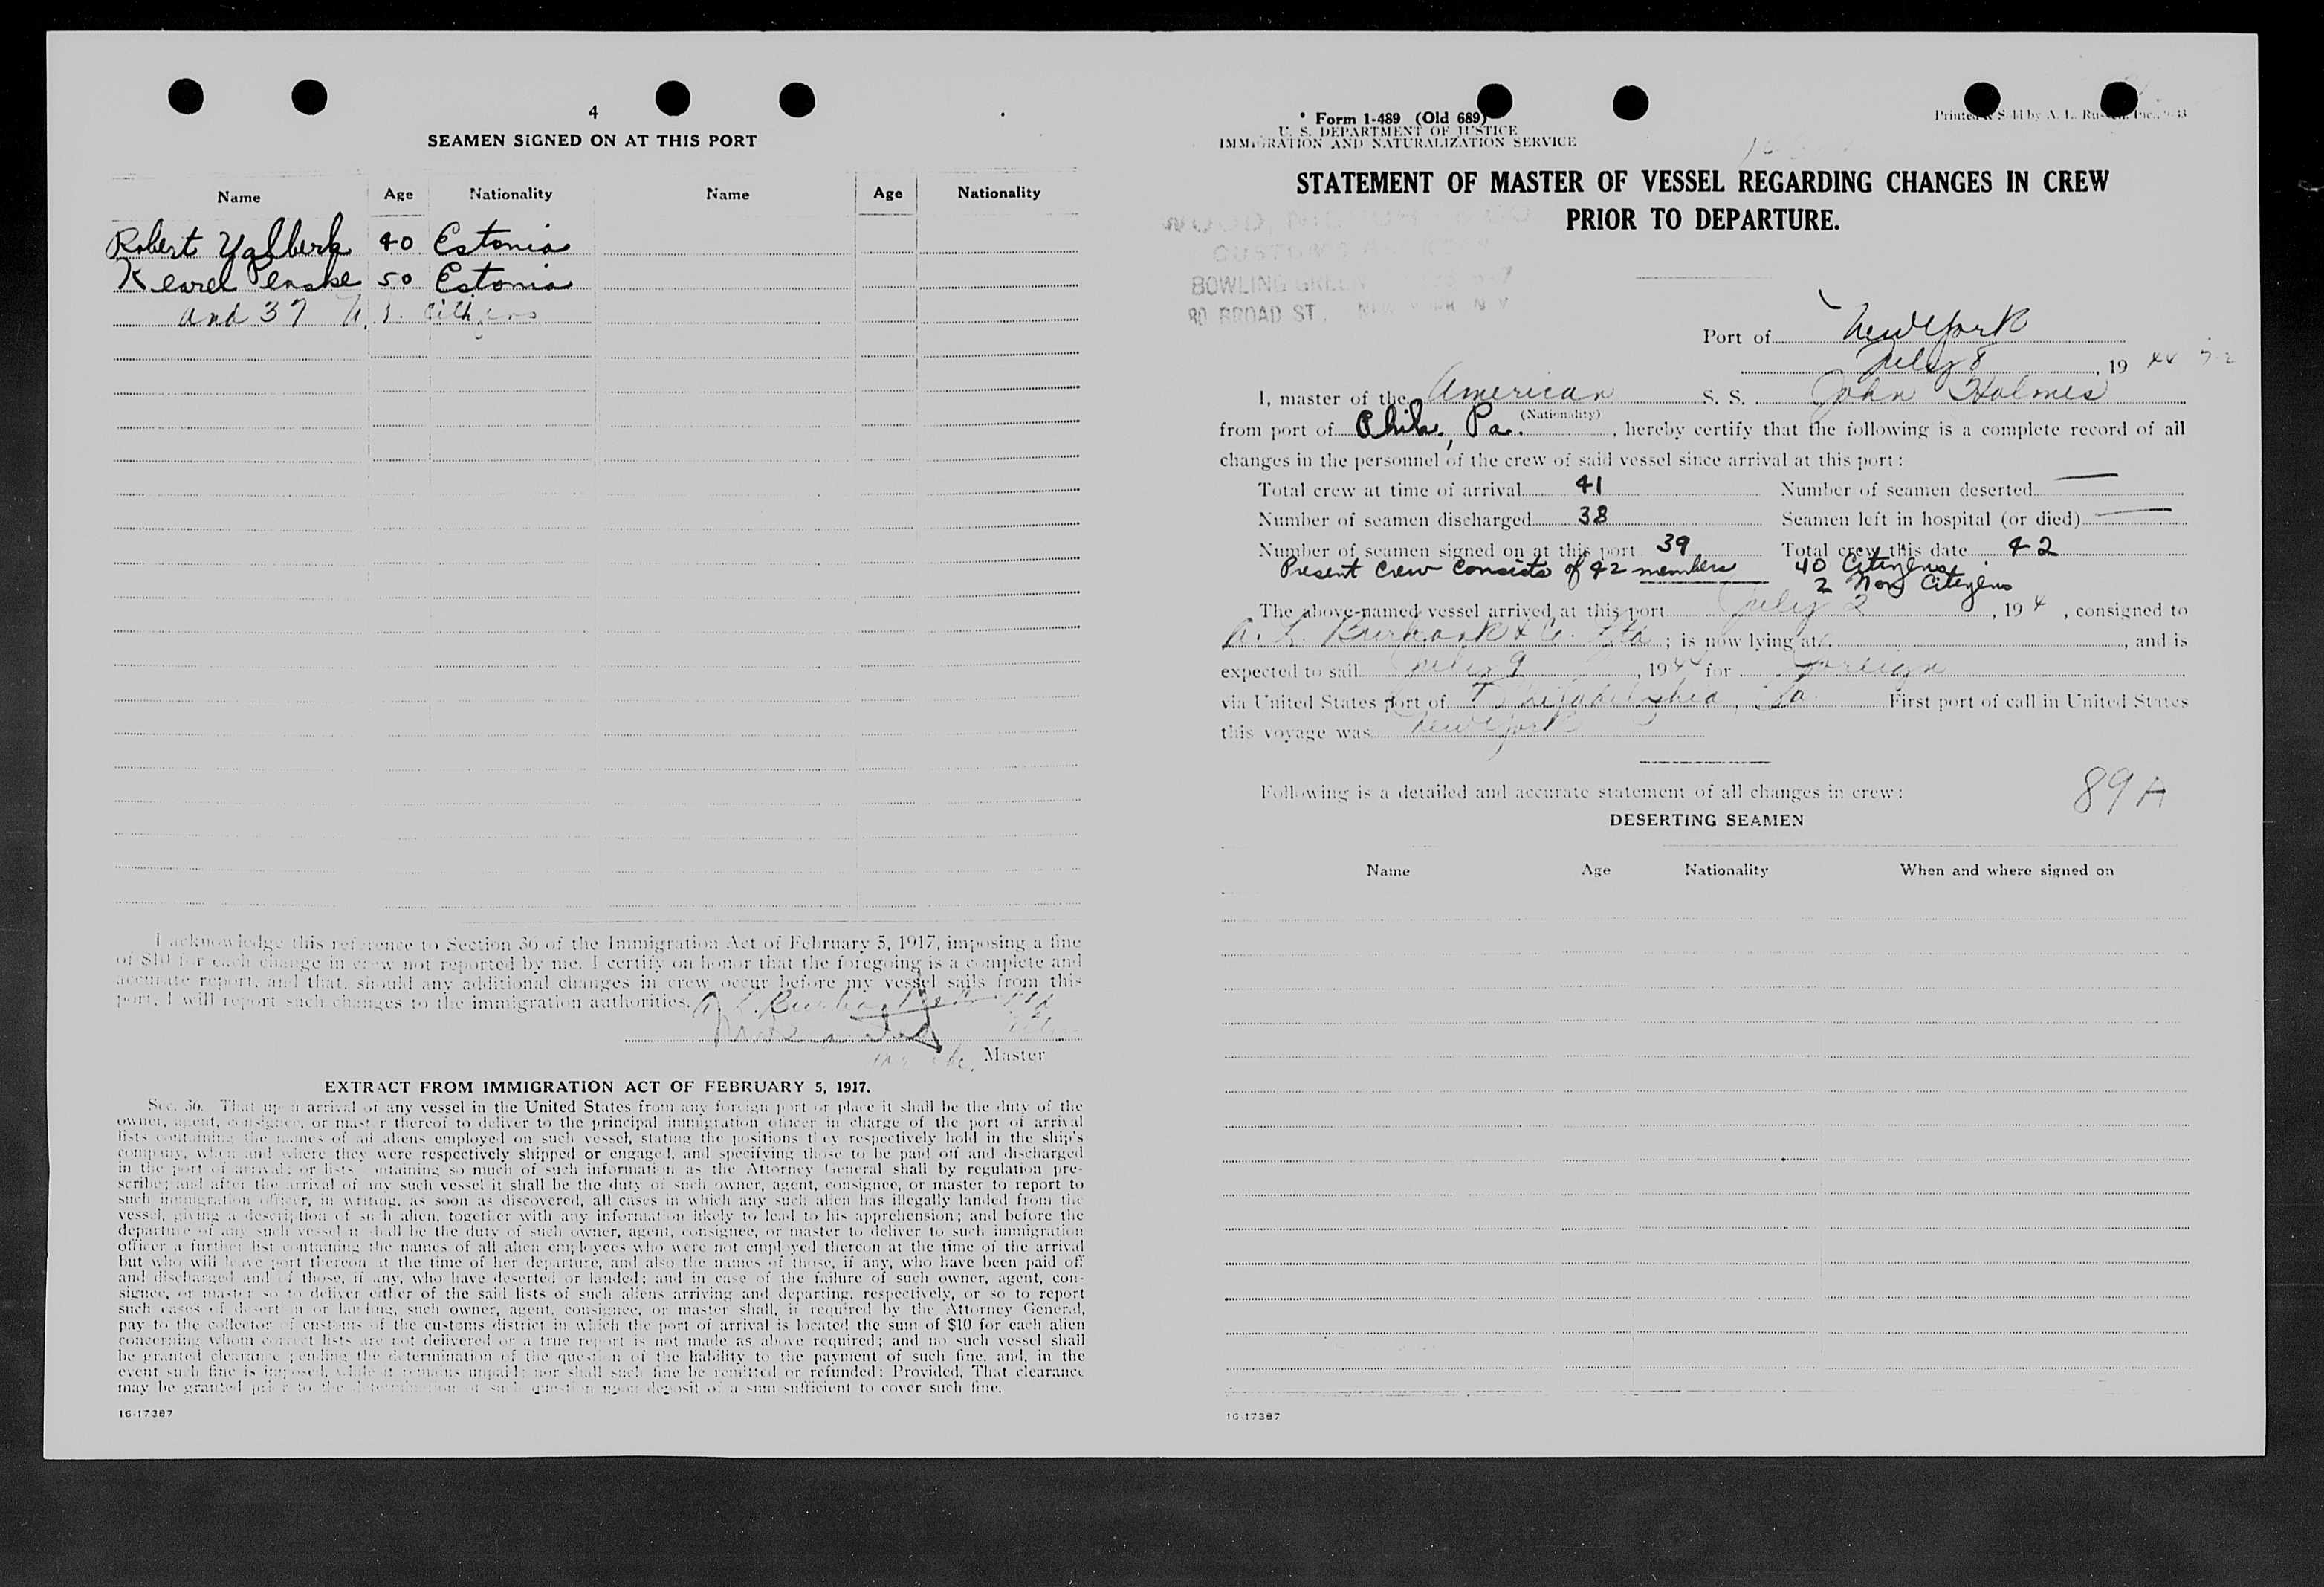 4
SEAMEN SIGNED ON AT THIS PORT
Name Age Nationality Name Age Nationality
Robert Yalberk 40 Estonia
Kearel Penske 50 Estonia
and 37 U. S. Citizens
I acknowledge this reference to Section 36 of the Immigration Act of February 5, 1917, imposing a fine
of $10 for each change in crew not reported by me. I certify on honor that the foregoing is a complete and
accurate report, and that, should any additional changes in crew occur before my vessel sails from this
port, I will report such changes to the immigration authorities.
Master
EXTRACT FROM IMMIGRATION ACT OF FEBRUARY 5, 1917.
Sec. 36. That upon arrival of any vessel in the United States from any foreign port or place it shall be the duty of the
owner, agent, consignee, or master thereof to deliver to the principal immigration officer in charge of the port of arrival
lists containing the names of all aliens employed on such vessel, stating the positions they respectively hold in the ship's
company, when and where they were respectively shipped or engaged, and specifying those to be paid off and discharged
in the port of arrival; or lists containing so much of such information as the Attorney General shall by regulation pre-
scribe; and after the arrival of any such vessel it shall be the duty of such owner, agent, consignee, or master to report to
such immigration officer, in writing, as soon as discovered, all cases in which any such alien has illegally landed from the
vessel, giving a description of such alien, together with any information likely to lead to his apprehension; and before the
departure of any such vessel it shall be the duty of such owner, agent, consignee, or master to deliver to such immigration
officer a further list containing the names of all alien employees who were not employed thereon at the time of the arrival
but who will leave port thereon at the time of her departure, and also the names of those, if any, who have been paid off
and discharged and of those, if any, who have deserted or landed; and in case of the failure of such owner, agent, con-
signee, or master so to deliver either of the said lists of such aliens arriving and departing, respectively, or so to report
such cases of desertion or landing, such owner, agent, consignee, or master shall, if required by the Attorney General,
pay to the collector of customs of the customs district in which the port of arrival is located the sum of $10 for each alien
concerning whom correct lists are not delivered or a true report is not made as above required; and no such vessel shall
be granted clearance pending the determination of the question of the liability to the payment of such fine, and, in the
event such fine is imposed, while it remains unpaid; nor shall such fine be remitted or refunded: Provided, That clearance
may be granted prior to the determination of such question upon deposit of a sum sufficient to cover such fine.
16-17387
Form 1-489 (Old 689)
U. S. DEPARTMENT OF JUSTICE
IMMIGRATION AND NATURALIZATION SERVICE
Printed & Sold by A. L. Russell, Inc.,
STATEMENT OF MASTER OF VESSEL REGARDING CHANGES IN CREW
PRIOR TO DEPARTURE.
CUSTOMS
BOWLING GREEN
80 BROAD ST., NEW YORK N Y
Port of New York
July 8, 19 44
I, master of the American S. S. John Holmes
(Nationality)
from port of Phila., Pa., hereby certify that the following is a complete record of all
changes in the personnel of the crew of said vessel since arrival at this port:
Total crew at time of arrival 41 Number of seamen deserted —
Number of seamen discharged 38 Seamen left in hospital (or died) —
Number of seamen signed on at this port 39 Total crew this date 42
Present Crew Consists of 42 members 40 Citizens
2 Non Citizens
The above-named vessel arrived at this port July 2, 194 , consigned to
A. L. Burbank & Co. Ltd; is now lying at, and is
expected to sail July 9, 1944 for Foreign
via United States port of Philadelphia, Pa. First port of call in United States
this voyage was New York
Following is a detailed and accurate statement of all changes in crew:
89 A
DESERTING SEAMEN
Name Age Nationality When and where signed on
16-17387